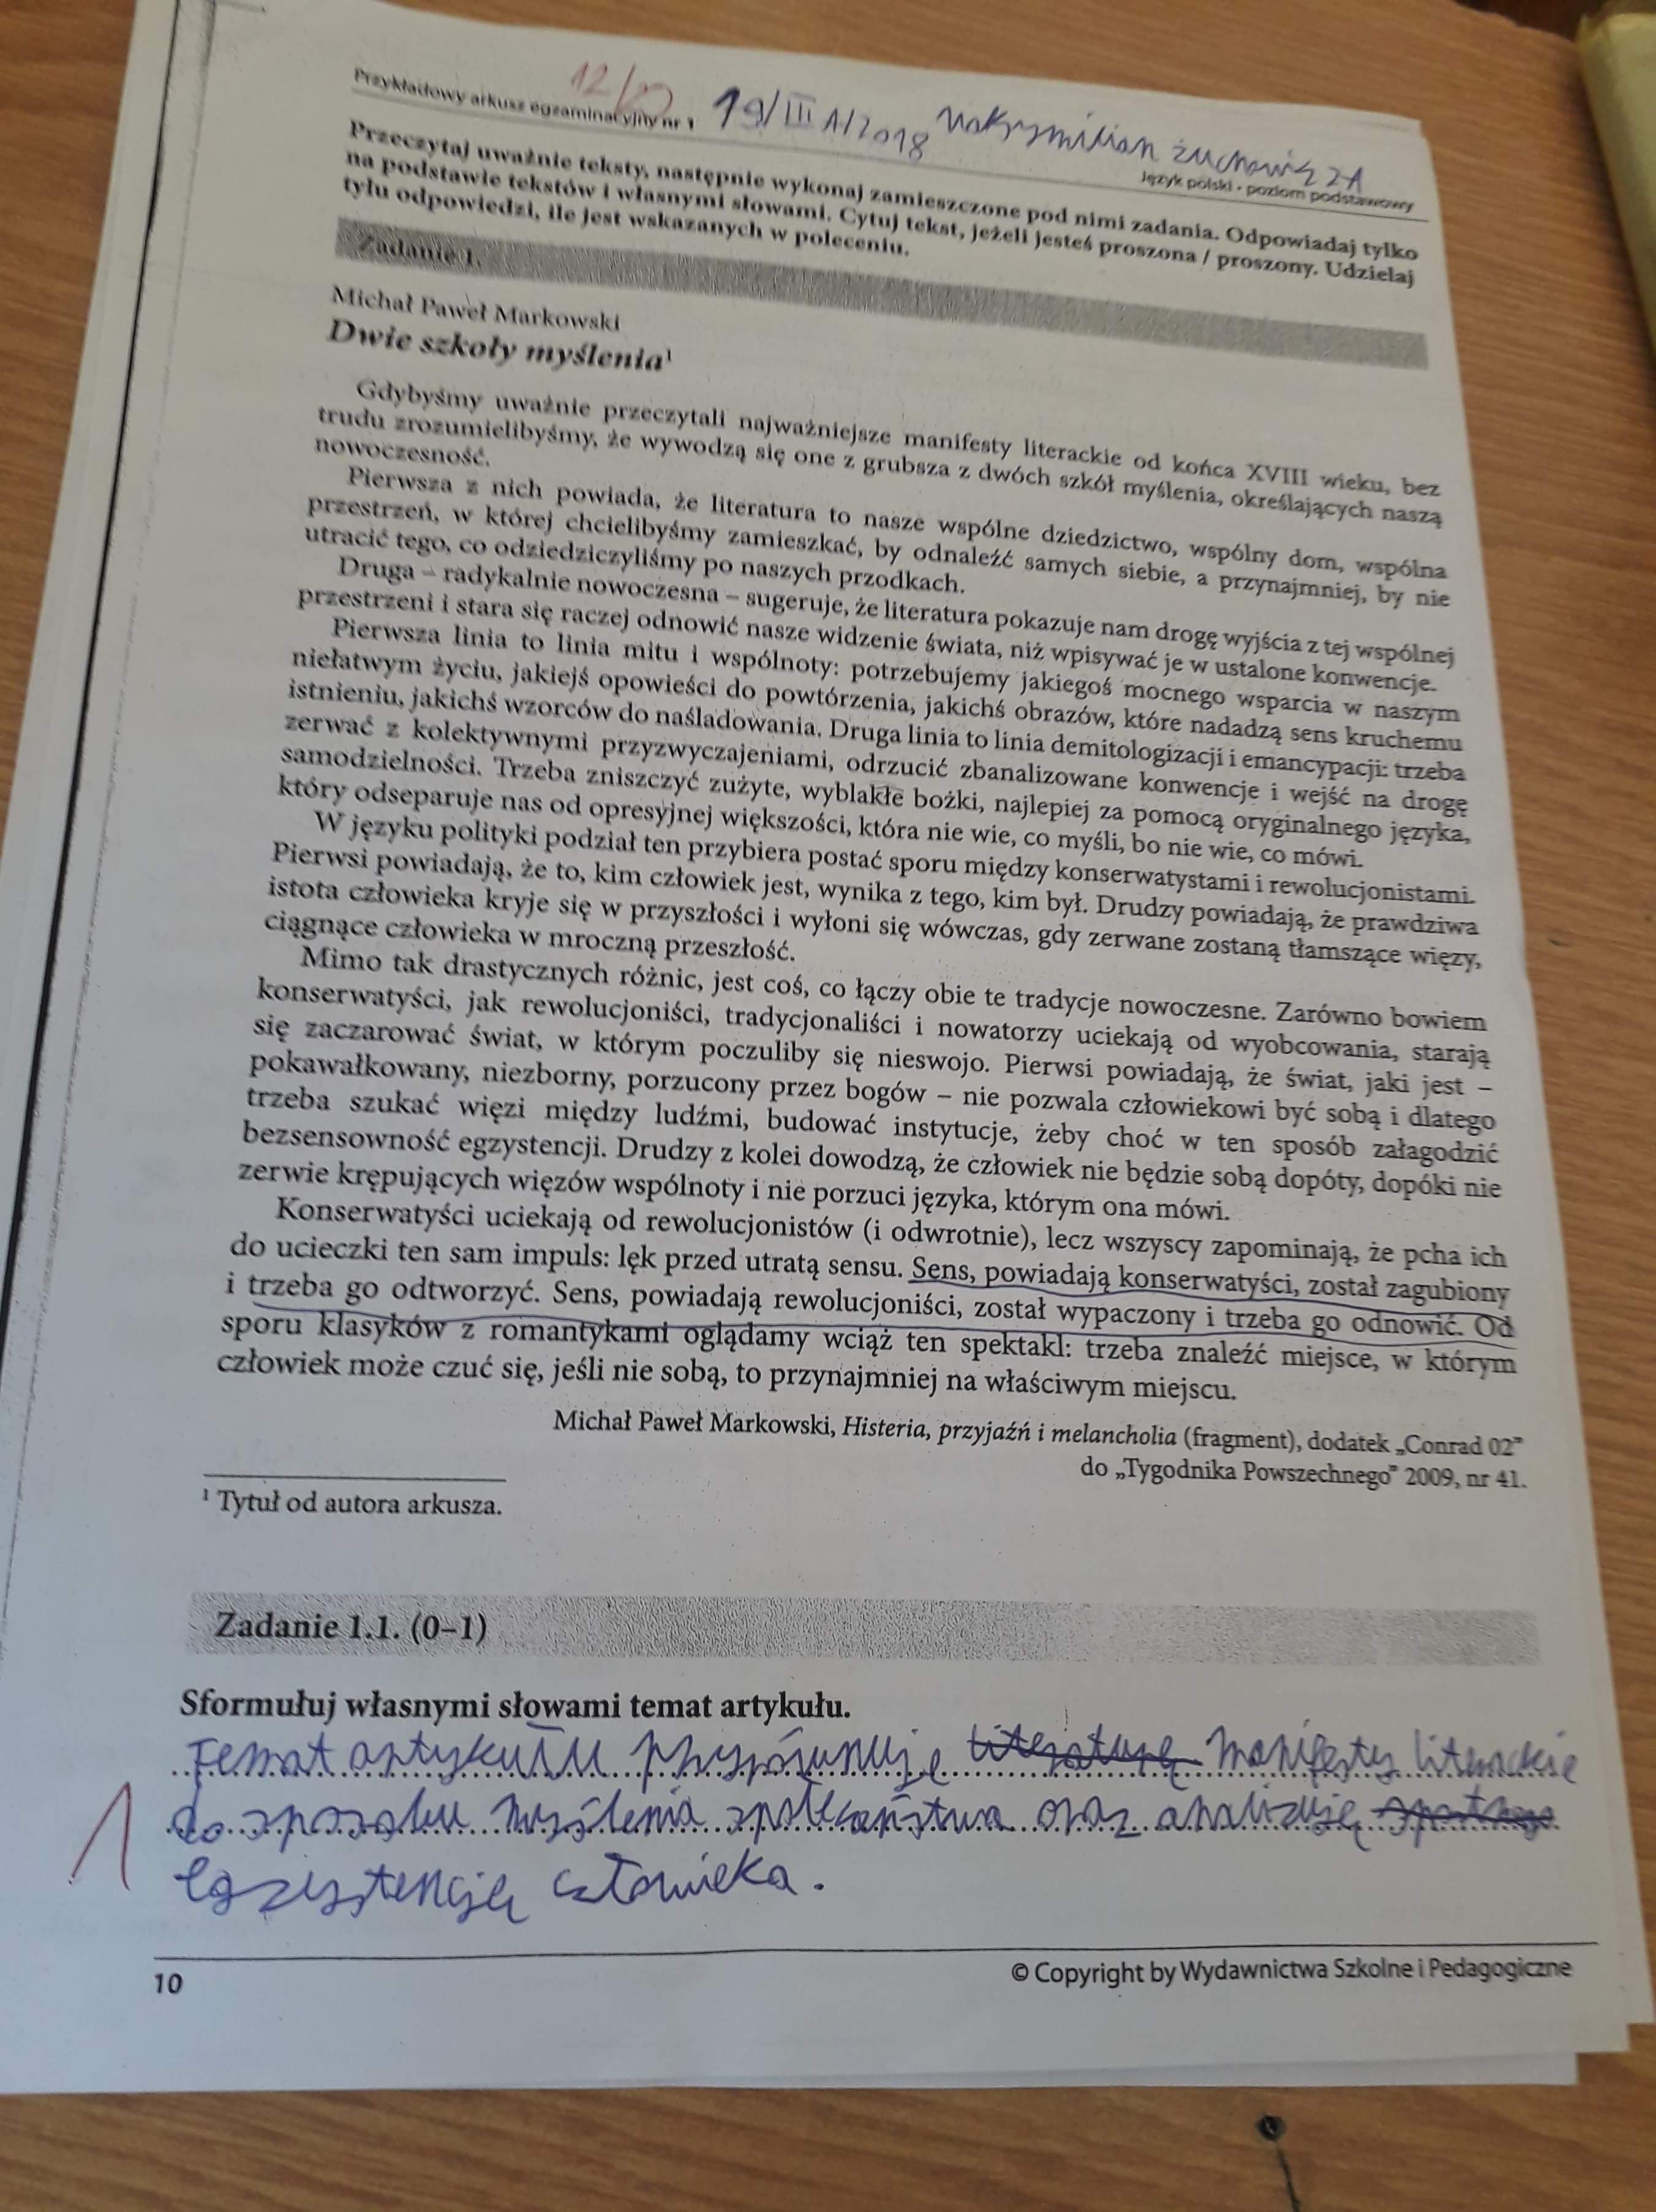 12/
Przykładowy arkusz egzaminacyjny nr 1
19/III A/2018 Maksymilian
Język polski • poziom podstawowy
Przeczytaj uważnie teksty, następnie wykonaj zamieszczone pod nimi zadania. Odpowiadaj tylko
na podstawie tekstów i własnymi słowami. Cytuj tekst, jeżeli jesteś proszona / proszony. Udzielaj
tylu odpowiedzi, ile jest wskazanych w poleceniu.
Zadanie 1.
Michał Paweł Markowski
Dwie szkoły myślenia¹
Gdybyśmy uważnie przeczytali najważniejsze manifesty literackie od końca XVIII wieku, bez
trudu zrozumielibyśmy, że wywodzą się one z grubsza z dwóch szkół myślenia, określających naszą
nowoczesność.
Pierwsza z nich powiada, że literatura to nasze wspólne dziedzictwo, wspólny dom, wspólna
przestrzeń, w której chcielibyśmy zamieszkać, by odnaleźć samych siebie, a przynajmniej, by nie
utracić tego, co odziedziczyliśmy po naszych przodkach.
Druga – radykalnie nowoczesna – sugeruje, że literatura pokazuje nam drogę wyjścia z tej wspólnej
przestrzeni i stara się raczej odnowić nasze widzenie świata, niż wpisywać je w ustalone konwencje.
Pierwsza linia to linia mitu i wspólnoty: potrzebujemy jakiegoś mocnego wsparcia w naszym
niełatwym życiu, jakiejś opowieści do powtórzenia, jakichś obrazów, które nadadzą sens kruchemu
istnieniu, jakichś wzorców do naśladowania. Druga linia to linia demitologizacji i emancypacji: trzeba
zerwać z kolektywnymi przyzwyczajeniami, odrzucić zbanalizowane konwencje i wejść na drogę
samodzielności. Trzeba zniszczyć zużyte, wyblakłe bożki, najlepiej za pomocą oryginalnego języka,
który odseparuje nas od opresyjnej większości, która nie wie, co myśli, bo nie wie, co mówi.
W języku polityki podział ten przybiera postać sporu między konserwatystami i rewolucjonistami.
Pierwsi powiadają, że to, kim człowiek jest, wynika z tego, kim był. Drudzy powiadają, że prawdziwa
istota człowieka kryje się w przyszłości i wyłoni się wówczas, gdy zerwane zostaną tłamszące więzy,
ciągnące człowieka w mroczną przeszłość.
Mimo tak drastycznych różnic, jest coś, co łączy obie te tradycje nowoczesne. Zarówno bowiem
konserwatyści, jak rewolucjoniści, tradycjonaliści i nowatorzy uciekają od wyobcowania, starają
się zaczarować świat, w którym poczuliby się nieswojo. Pierwsi powiadają, że świat, jaki jest –
pokawałkowany, niezborny, porzucony przez bogów – nie pozwala człowiekowi być sobą i dlatego
trzeba szukać więzi między ludźmi, budować instytucje, żeby choć w ten sposób załagodzić
bezsensowność egzystencji. Drudzy z kolei dowodzą, że człowiek nie będzie sobą dopóty, dopóki nie
zerwie krępujących więzów wspólnoty i nie porzuci języka, którym ona mówi.
Konserwatyści uciekają od rewolucjonistów (i odwrotnie), lecz wszyscy zapominają, że pcha ich
do ucieczki ten sam impuls: lęk przed utratą sensu. Sens, powiadają konserwatyści, został zagubiony
i trzeba go odtworzyć. Sens, powiadają rewolucjoniści, został wypaczony i trzeba go odnowić. Od
sporu klasyków z romantykami oglądamy wciąż ten spektakl: trzeba znaleźć miejsce, w którym
człowiek może czuć się, jeśli nie sobą, to przynajmniej na właściwym miejscu.
Michał Paweł Markowski, Histeria, przyjaźń i melancholia (fragment), dodatek „Conrad 02”
do „Tygodnika Powszechnego” 2009, nr 41.
¹ Tytuł od autora arkusza.
Zadanie 1.1. (0–1)
Sformułuj własnymi słowami temat artykułu.
Temat artykułu przyrównuje literaturę manifesty literackie
do sposobu myślenia społeczeństwa oraz analizuję
egzystencję człowieka.
1
10
© Copyright by Wydawnictwa Szkolne i Pedagogiczne